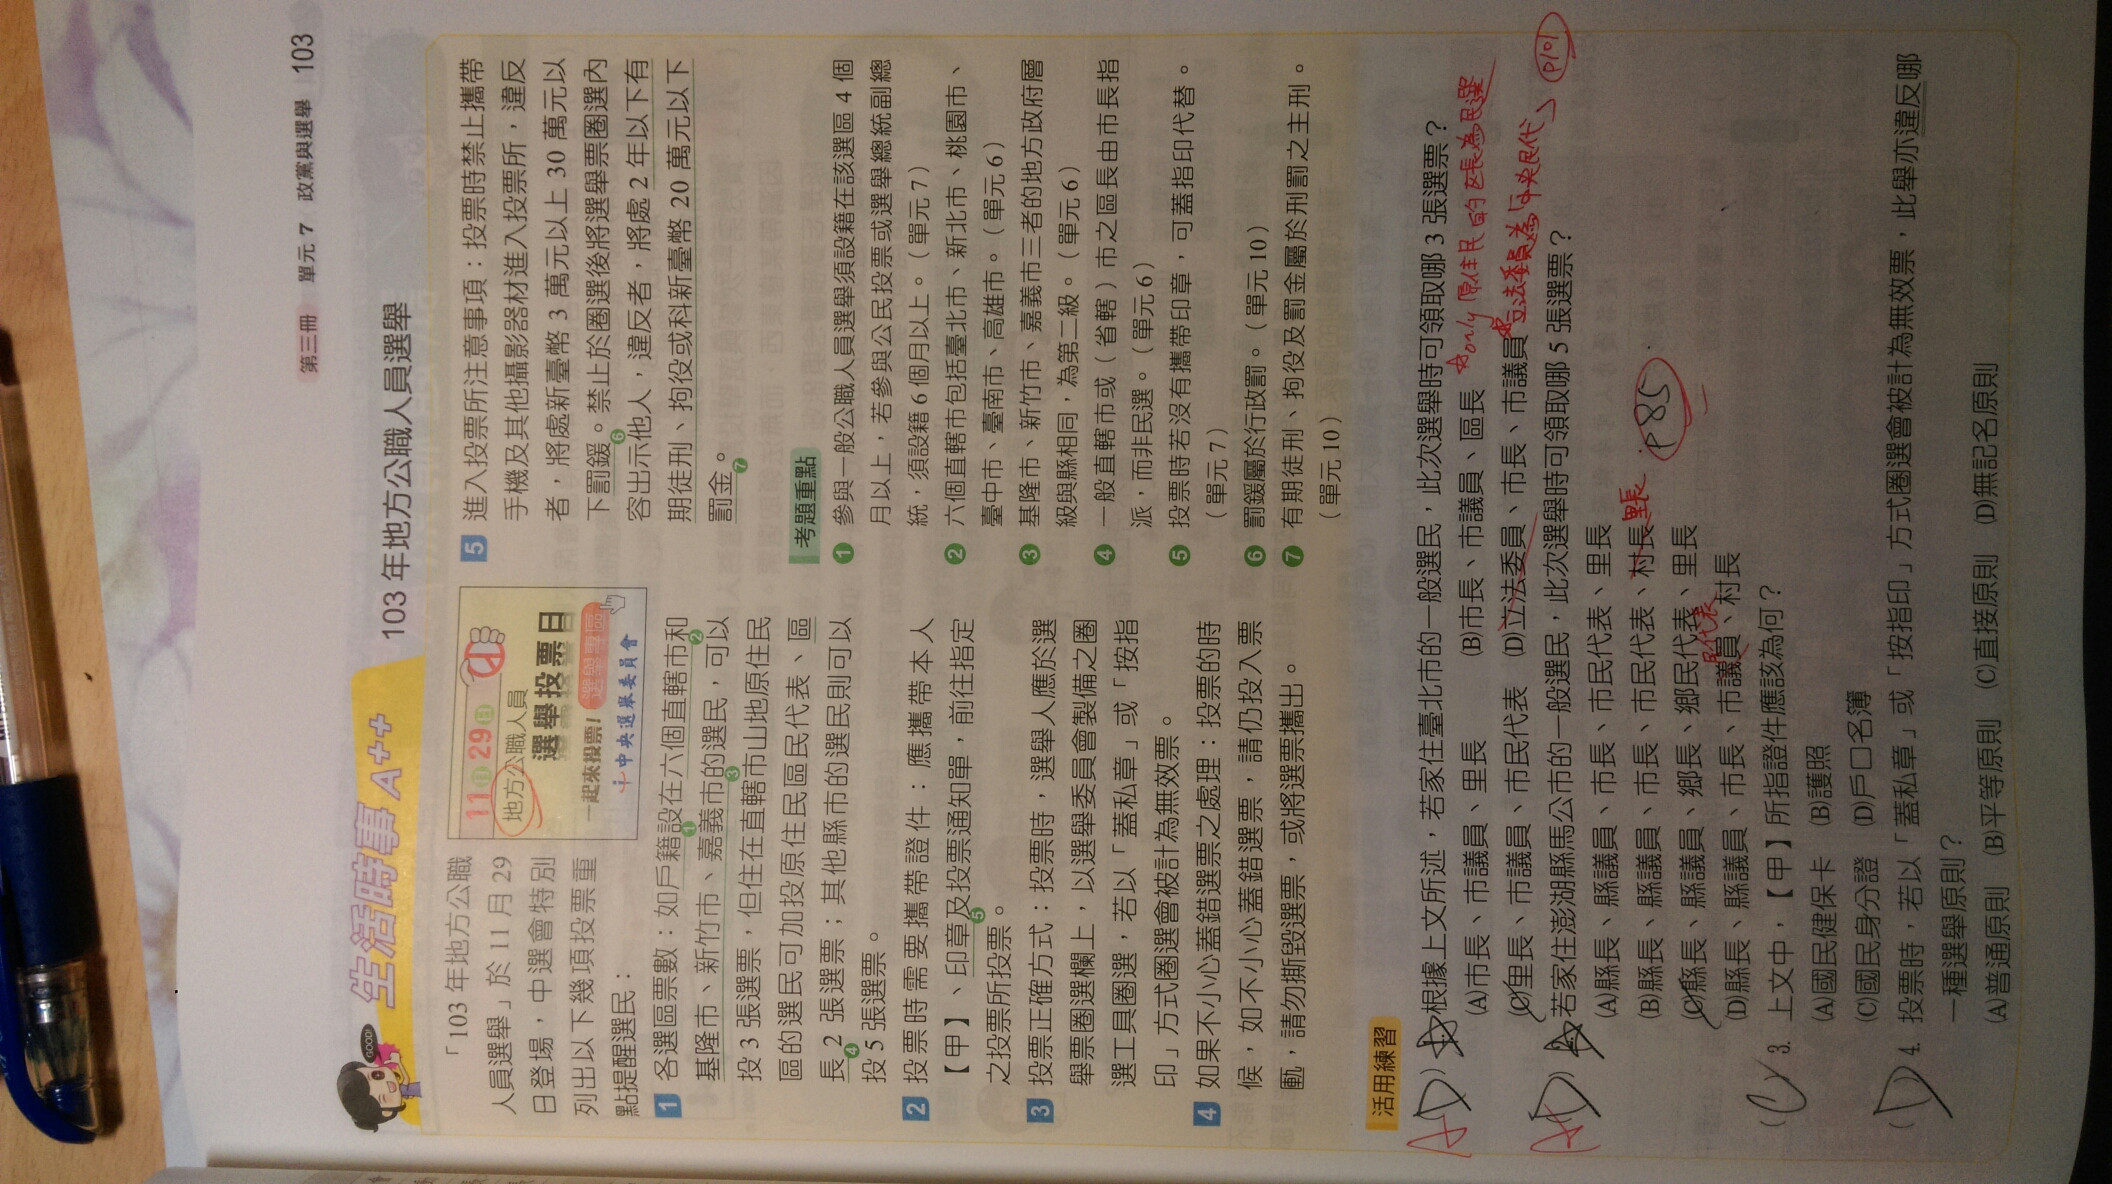 第三冊 單元 7 政黨與選舉 103
生活時事 A++
103 年地方公職人員選舉
GOOD!
「103 年地方公職
人員選舉」於 11 月 29
日登場，中選會特別
列出以下幾項投票重
點提醒選民：
11月29日
地方公職人員
選舉投票日
一起來投票！ 選舉專區
中央選舉委員會
1 各選區票數：如戶籍設在六個直轄市和
基隆市、新竹市、嘉義市的選民，可以
投 3 張選票，但住在直轄市山地原住民
區的選民可加投原住民區民代表、區
長 2 張選票；其他縣市的選民則可以
投 5 張選票。
2 投票時需要攜帶證件：應攜帶本人
【甲】、印章及投票通知單，前往指定
之投票所投票。
3 投票正確方式：投票時，選舉人應於選
舉票圈選欄上，以選舉委員會製備之圈
選工具圈選，若以「蓋私章」或「按指
印」方式圈選會被計為無效票。
4 如果不小心蓋錯選票之處理：投票的時
候，如不小心蓋錯選票，請仍投入票
匭，請勿撕毀選票，或將選票攜出。
5 進入投票所注意事項：投票時禁止攜帶
手機及其他攝影器材進入投票所，違反
者，將處新臺幣 3 萬元以上 30 萬元以
下罰鍰。禁止於圈選後將選舉票圈選內
容出示他人，違反者，將處 2 年以下有
期徒刑、拘役或科新臺幣 20 萬元以下
罰金。
考題重點
1 參與一般公職人員選舉須設籍在該選區 4 個
月以上，若參與公民投票或選舉總統副總
統，須設籍 6 個月以上。（單元 7）
2 六個直轄市包括臺北市、新北市、桃園市、
臺中市、臺南市、高雄市。（單元 6）
3 基隆市、新竹市、嘉義市三者的地方政府層
級與縣相同，為第二級。（單元 6）
4 一般直轄市或（省轄）市之區長由市長指
派，而非民選。（單元 6）
5 投票時若沒有攜帶印章，可蓋指印代替。
（單元 7）
6 罰鍰屬於行政罰。（單元 10）
7 有期徒刑、拘役及罰金屬於刑罰之主刑。
（單元 10）
活用練習
根據上文所述，若家住臺北市的一般選民，此次選舉時可領取哪 3 張選票？
(A)市長、市議員、里長 (B)市長、市議員、區長
☆only 原住民的區長為民選
(C)里長、市議員、市民代表 (D)立法委員、市長、市議員
☆立法委員為「中央民代」 P101
若家住澎湖縣馬公市的一般選民，此次選舉時可領取哪 5 張選票？
(A)縣長、縣議員、市長、市民代表、里長
(B)縣長、縣議員、市長、市民代表、村長 里長
P85
(C)縣長、縣議員、鄉長、鄉民代表、里長
(D)縣長、縣議員、市長、市議員、村長
(C) 3. 上文中，【甲】所指證件應該為何？
(A)國民健保卡 (B)護照
(C)國民身分證 (D)戶口名簿
(D) 4. 投票時，若以「蓋私章」或「按指印」方式圈選會被計為無效票，此舉亦違反哪
一種選舉原則？
(A)普通原則 (B)平等原則 (C)直接原則 (D)無記名原則